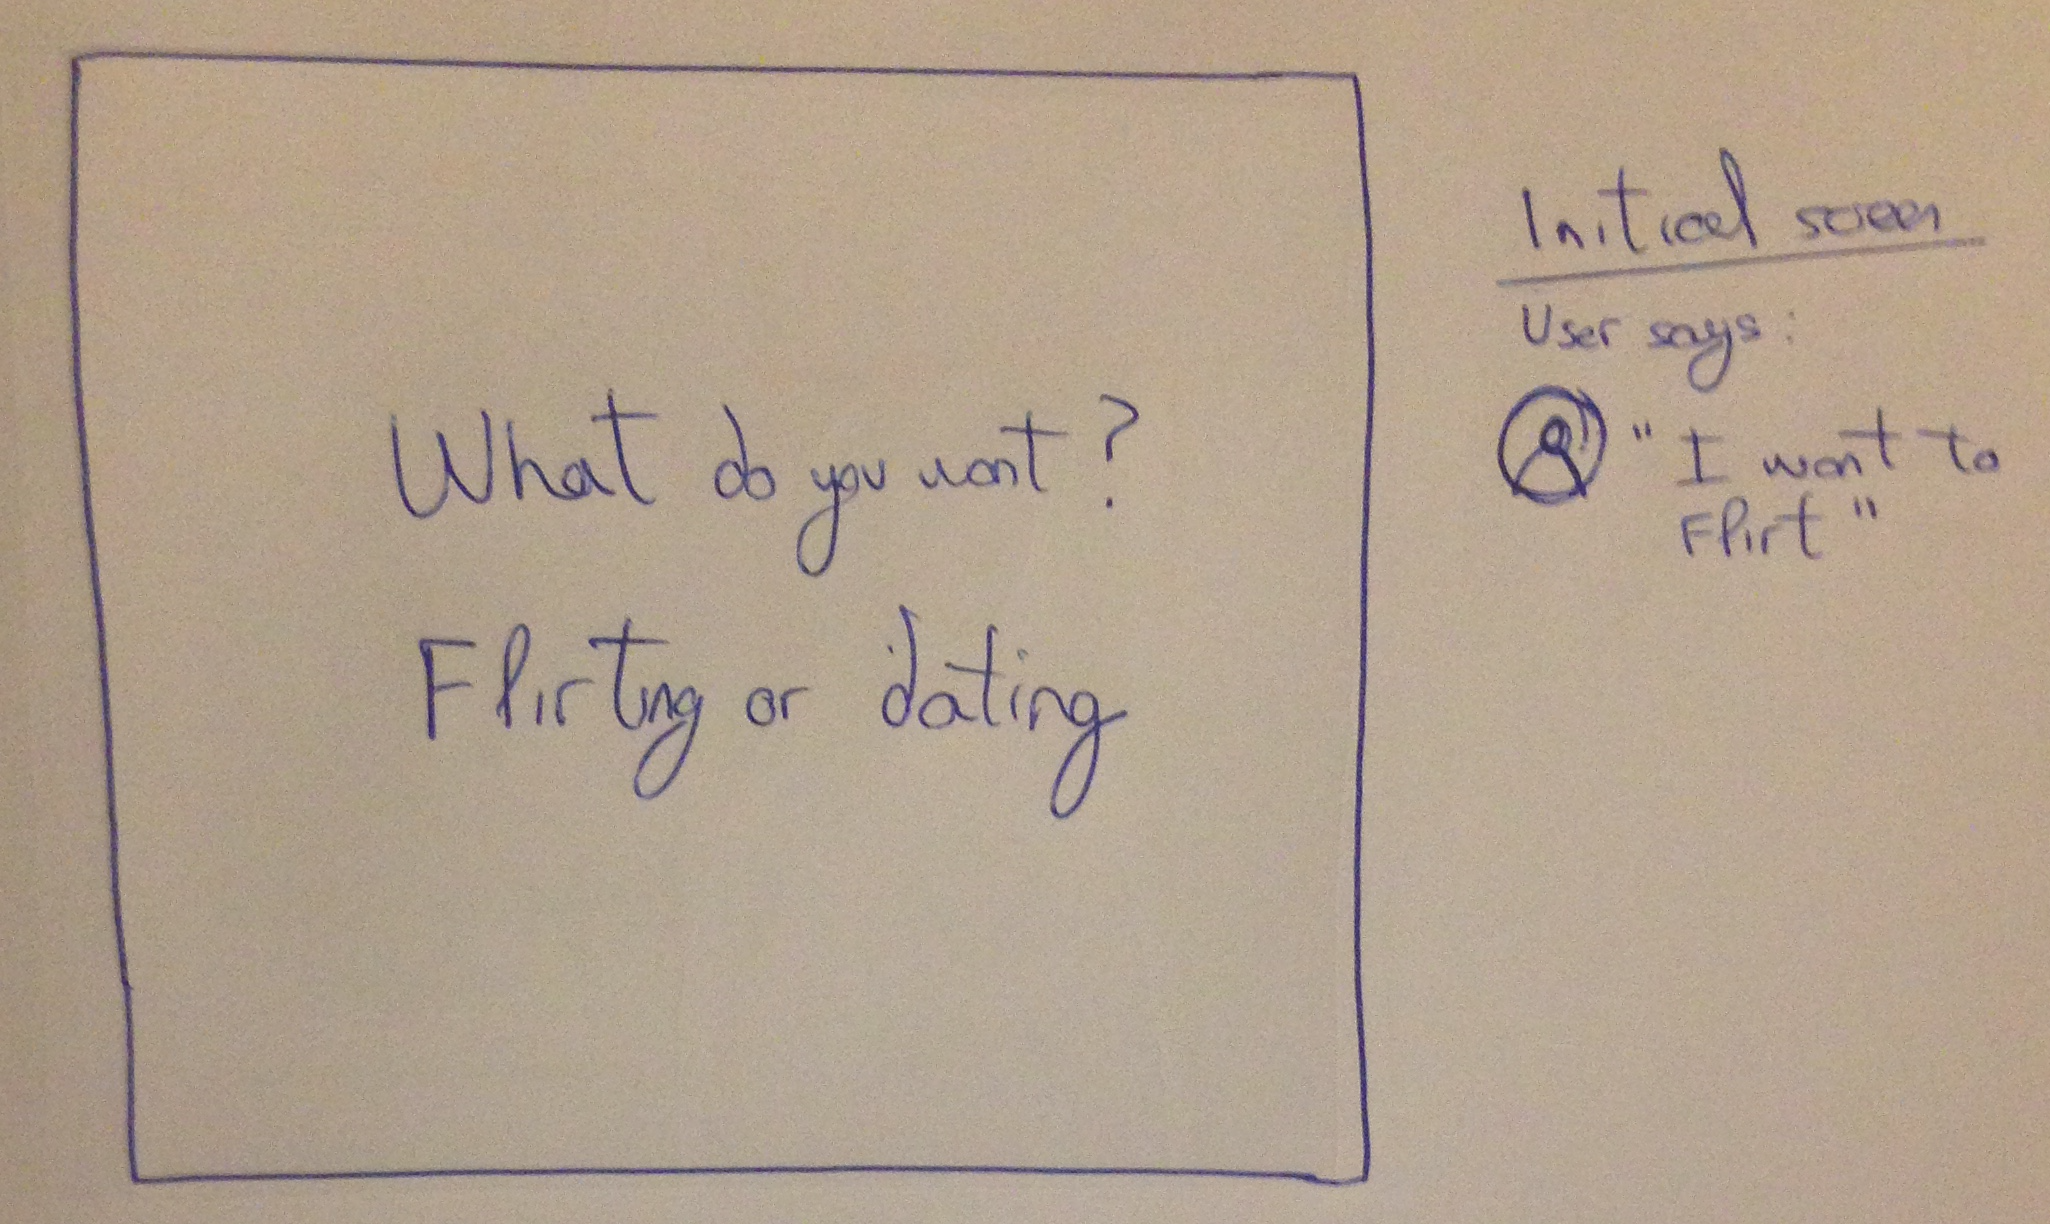 What do you want?
Flirting or dating
Initial screen
User says:
"I want to
Flirt"